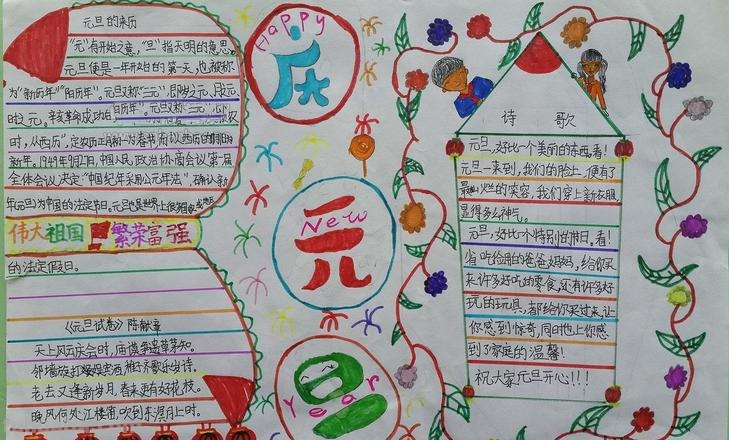 元旦的来历
"元"有开始之意,"旦"指天明的意思。
元旦便是一年开始的第一天,也被称
为"新历年""阳历年"。元旦又称"三元",即岁之元、月之元
时之元。辛亥革命成功后
时,从西历",定农历正月初一为春节,而以西历的
新年。1949年9月27日,中国人民政治协商会议第一届
全体会议决定"中国纪年采用公元年法",确认新
年元旦为中国的法定节日。元旦也是世界上很多国家或地区
伟大祖国 繁荣富强
的法定假日。
《元旦试卷》陈献章
天上风云庆会时,庙谟争遣草茅知。
邻墙旋打娱宾酒,稚子齐歌乐岁诗。
老去又逢新岁月,春来更有好花枝。
晚风何处江楼笛,吹到东溟月上时。
Happy
庆
New
元
旦
Year
诗 歌
元旦,好比一个美丽的东西,看!
元旦一来到,我们的脸上,便有了
最灿烂的笑容,我们穿上新衣服
显得多么神气。
元旦,好比个特别的日子,看!
省吃俭用的爸爸妈妈,给你买
来许多好吃的零食,还有许多好
玩的玩具,都给你买过来,让
你感到惊奇,同时也让你感
到了家庭的温馨!
祝大家元旦开心!!!